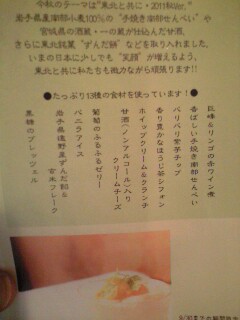 今秋のテーマは"東北と共に・2011秋Ver."
岩手県産南部小麦100%の"手焼き南部せんべい"や
宮城県の酒蔵・一の蔵が仕込んだ甘酒、
さらに東北銘菓"ずんだ餅"などを取り入れました。
いまの日本に少しでも"笑顔"が増えるよう、
東北と共に私たちも微力ながら頑張ります!!
●たっぷり13種の食材を使っています!●
巨峰&リンゴの赤ワイン煮
香ばしい手焼き南部せんべい
パリパリ紫芋チップ
香り豊かなほうじ茶シフォン
ホイップクリーム&クランチ
甘酒(ノンアルコール)入り
クリームチーズ
葡萄のふるふるゼリー
バニラアイス
岩手県遠野産ずんだ餡&
玄米フレーク
黒糖のプレッツェル